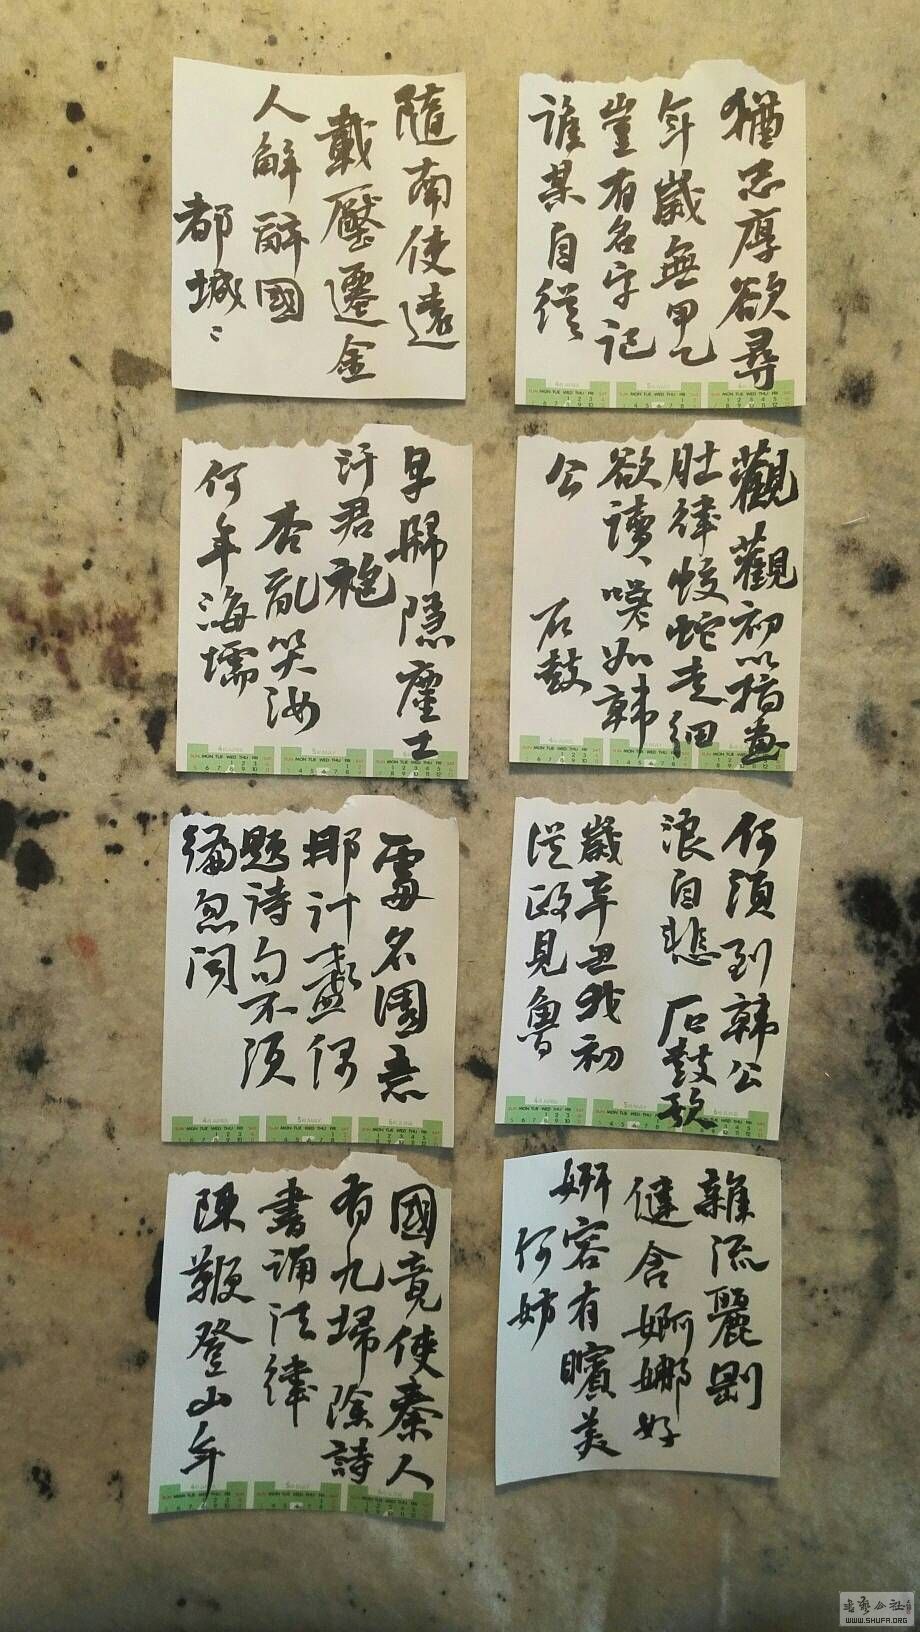 猶忠厚欲尋
年歲無甲乙
豈有名字記
誰某自從
觀觀初以指畫
肚律蛟蛇走細
欲讀嗟如韓
公 石鼓
何須到韓公
浪自悲石鼓歌
歲辛丑我初
從政見魯
雜流麗剛
健含婀娜好
妍容有矉美
何妨
隨南使遠
載壓遷金
人解辭國
都城〻
早歸隱塵土
汙君袍
杏亂笑汝
何年海壖
名園意
那計盛偶
題詩句不須
編忽聞
國竟使秦人
有九掃除詩
書誦法律
陳鞭登山年
书艺公社
WWW.SHUFA.ORG